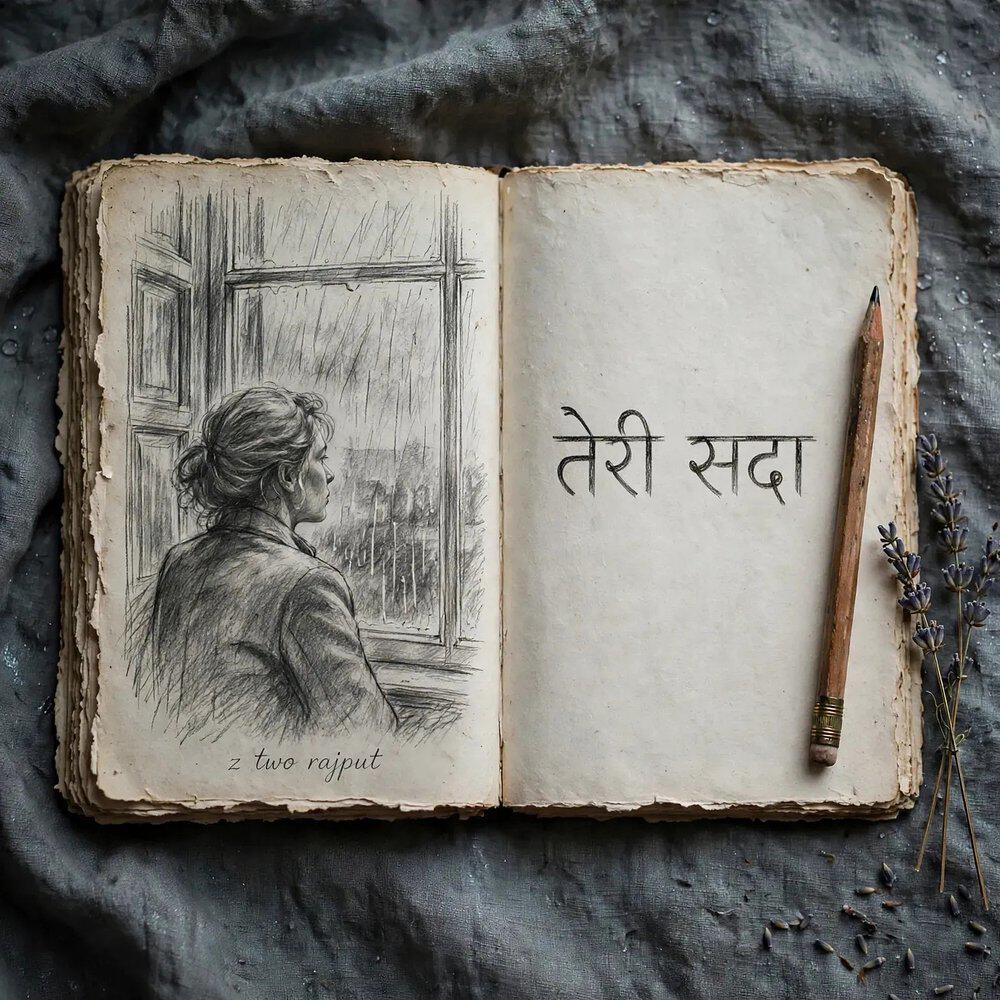 z two rajput
तेरी सदा